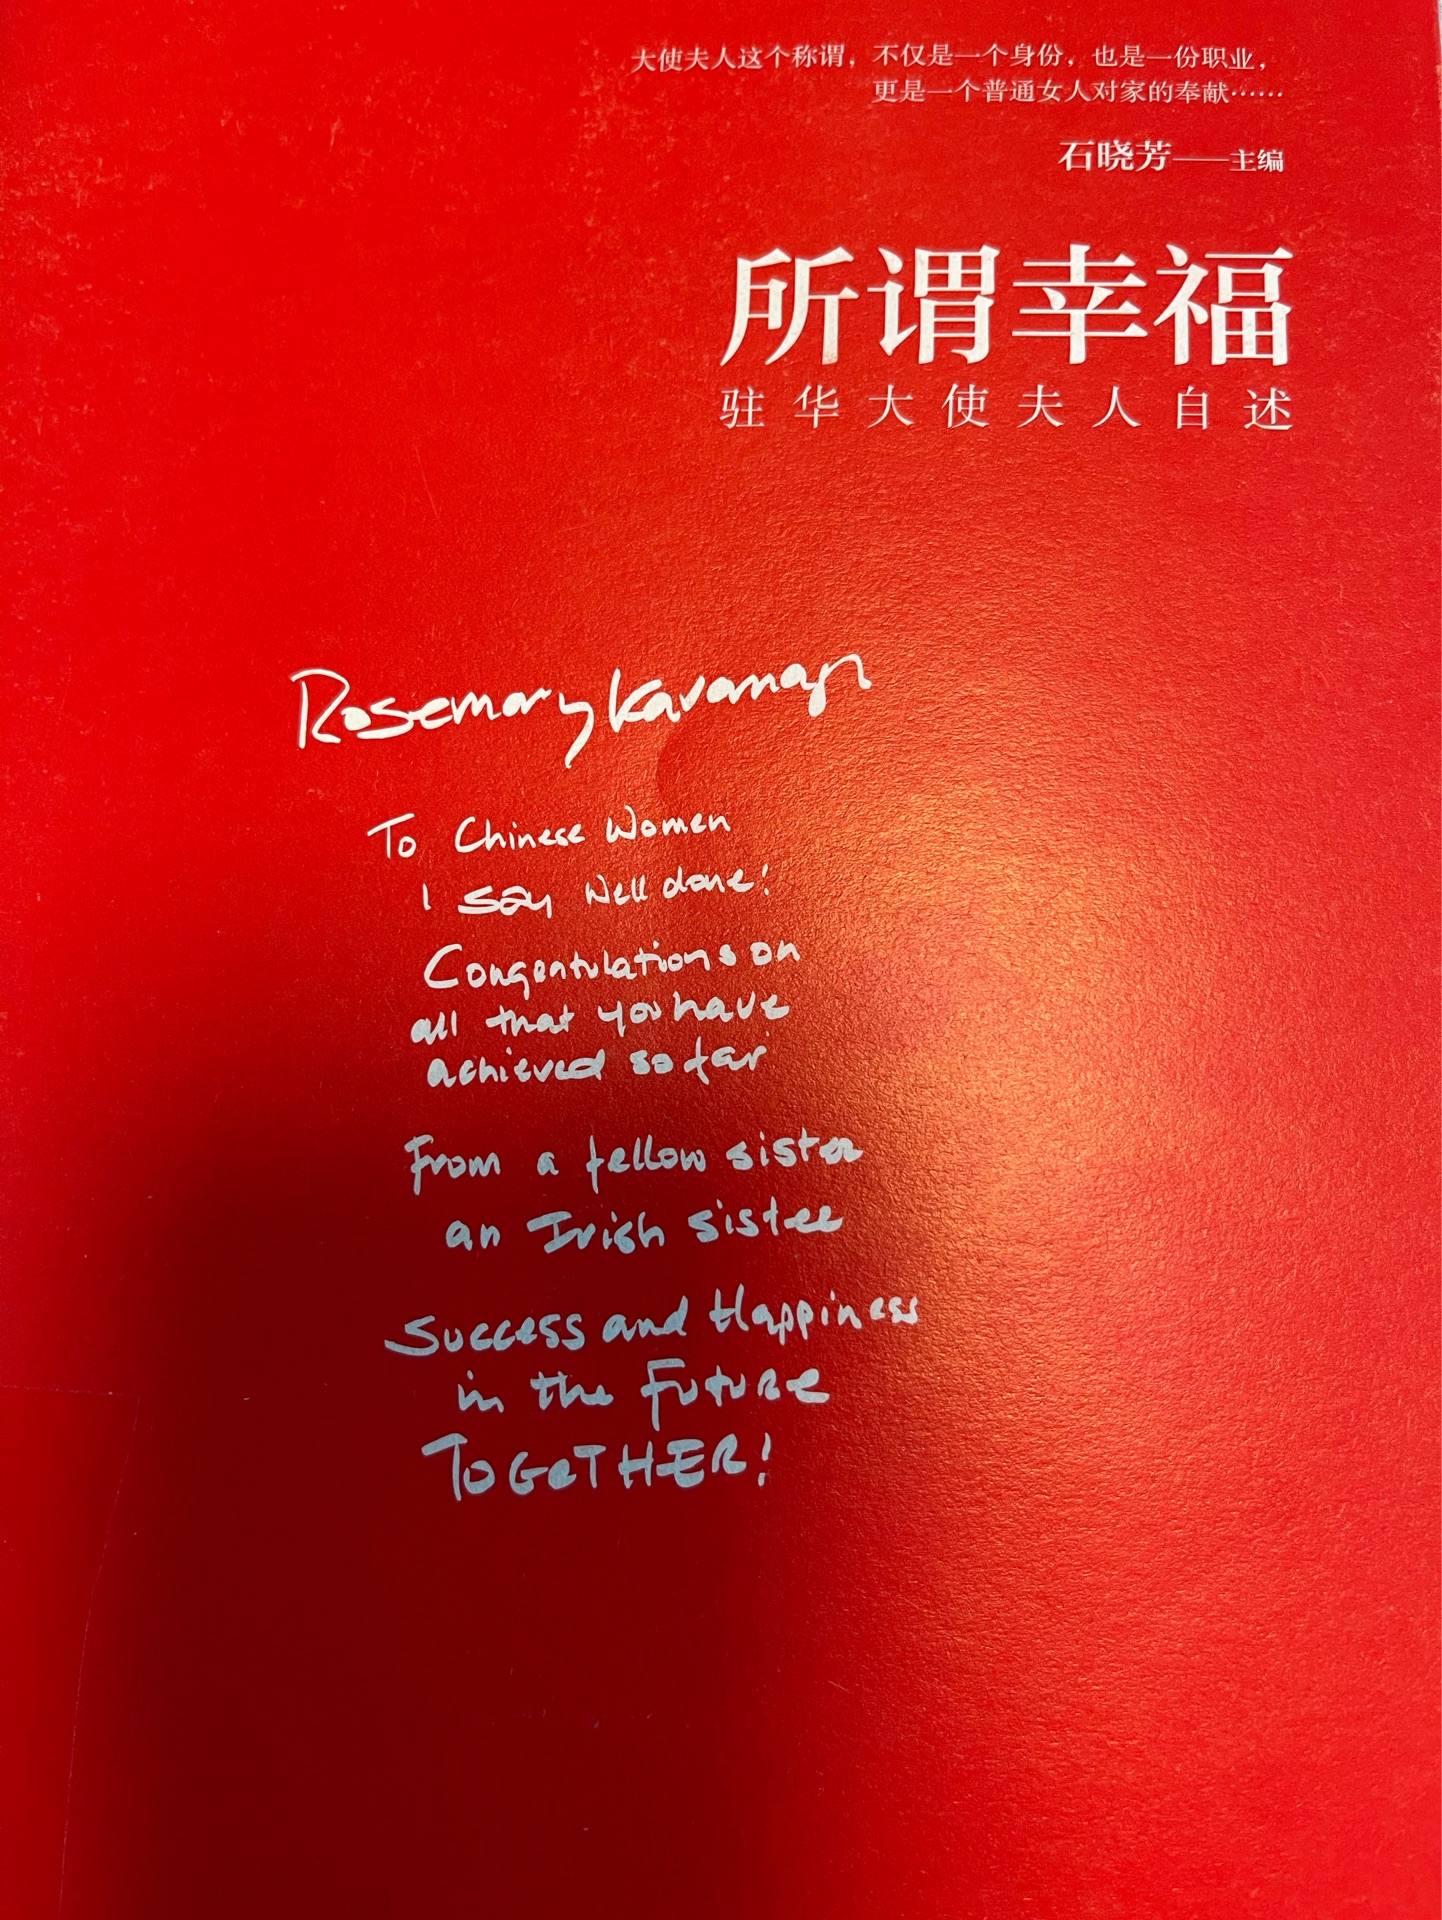 大使夫人这个称谓，不仅是一个身份，也是一份职业，
更是一个普通女人对家的奉献……
石晓芳——主编
所谓幸福
驻华大使夫人自述
Rosemary Kavanagh
To Chinese Women
I say Well done!
Congratulations on
all that you have
achieved so far
From a fellow sister
an Irish sister
Success and Happiness
in the Future
TOGETHER!